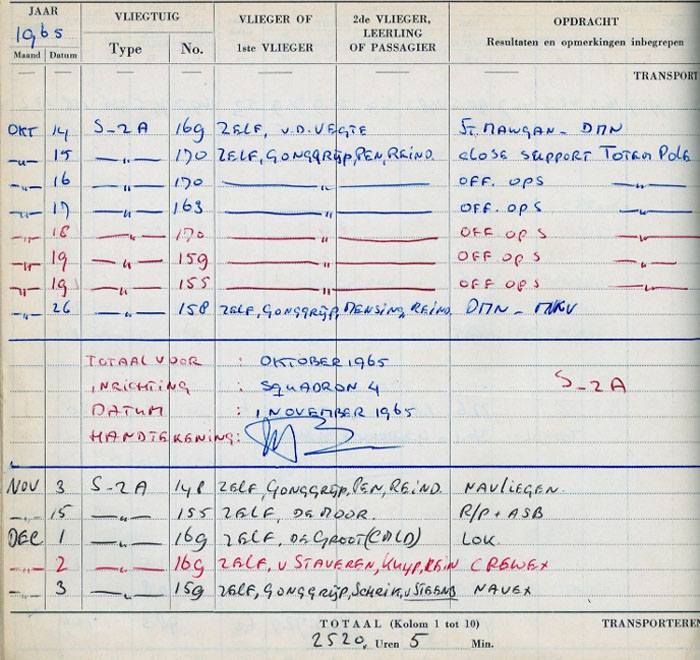 JAAR VLIEGTUIG VLIEGER OF 1ste VLIEGER 2de VLIEGER, LEERLING OF PASSAGIER OPDRACHT
1965 Resultaten en opmerkingen inbegrepen
Maand Datum Type No.
TRANSPORT
OKT 14 S-2A 169 ZELF, V.D. VEGTE ST. MAWGAN - DMN
-"- 15 -"- 170 ZELF, GONGGRIJP, PEN, REIND. CLOSE SUPPORT TOTEM POLE
-"- 16 -"- 170 -"- OFF. OPS -"-
-"- 17 -"- 163 -"- OFF. OPS -"-
-"- 18 -"- 170 -"- OFF OPS -"-
-"- 19 -"- 159 -"- OFF OPS -"-
-"- 19 -"- 155 -"- OFF OPS -"-
-"- 26 -"- 158 ZELF, GONGGRIJP, MENSING, REIND. DMN - MKV
TOTAAL VOOR : OKTOBER 1965
INRICHTING : SQUADRON 4 S-2A
DATUM : 1 NOVEMBER 1965
HANDTEKENING:
NOV 3 S-2A 148 ZELF, GONGGRIJP, PEN, REIND. NAVLIEGEN.
-"- 15 -"- 155 ZELF, DE MOOR. R/P + ASB
DEC 1 -"- 169 ZELF, DE GROOT (CMLD) LOK.
-"- 2 -"- 169 ZELF, V STAVEREN, KUYP, REIN CREWEX
-"- 3 -"- 159 ZELF, GONGGRIJP, SCHRIK, V STEENB NAVEX
TOTAAL (Kolom 1 tot 10) TRANSPORTEREN
2520, Uren 5 Min.